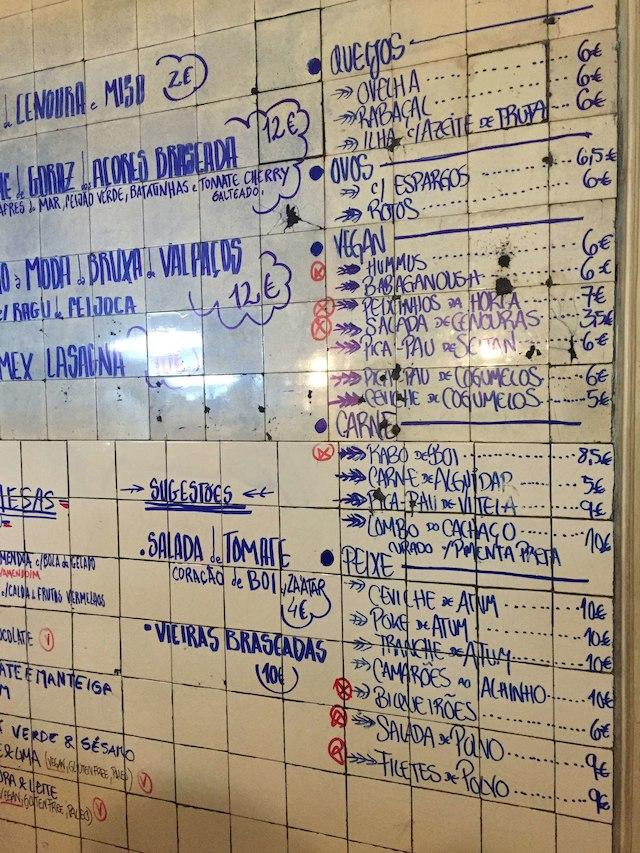 de CENOURA e MISO 2€
de GORAZ dos AÇORES BRASEADA 12€
DO MAR, FEIJÃO VERDE, BATATINHAS e TOMATE CHERRY
SALTEADO.
À MODA da BRUXA de VALPAÇOS
RAGU de FEIJOCA 12€
MEX LASAGNA
MESAS
C/BOLA de GELADO
C/CALDA de FRUTOS VERMELHOS
MANTEIGA
VERDE & SÉSAMO
& LIMA (VEGAN, GLUTEN FREE, PALEO) V
& LEITE
VEGAN, GLUTEN FREE, PALEO) V
→ SUGESTÕES ←
• SALADA de TOMATE
CORAÇÃO de BOI, ZA'ATAR
4€
• VIEIRAS BRASEADAS
10€
• QUEIJOS
OVELHA 6€
RABAÇAL 6€
ILHA C/AZEITE DE TRUFA 6€
• OVOS
C/ ESPARGOS 6,5€
ROTOS 6€
• VEGAN
HUMMUS 6€
BABAGANOUSH 6€
PEIXINHOS DA HORTA 7€
SALADA DE CENOURAS 3,5€
PICA-PAU DE SEITAN 6€
PICA-PAU DE COGUMELOS 6€
CEVICHE DE COGUMELOS 5€
• CARNE
RABO DE BOI 8,5€
CARNE DE ALGUIDAR 5€
PICA-PAU DE VITELA 9€
LOMBO DO CACHAÇO
CURADO C/PIMENTA PRETA 10€
• PEIXE
CEVICHE DE ATUM 10€
POKE DE ATUM 10€
TRANCHE DE ATUM 10€
CAMARÕES AO ALHINHO 10€
BIQUEIRÕES 6€
SALADA DE POLVO 9€
FILETES DE POLVO 9€